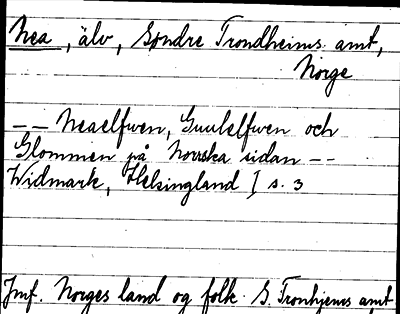 Nea, älv, Søndre Trondheims amt,
Norge
-- Neaelfwen, Guulelfwen och
Glommen på Norrska sidan --
Widmark, Helsingland I s. 3
Jmf. Norges land og folk. S. Tronhjems amt